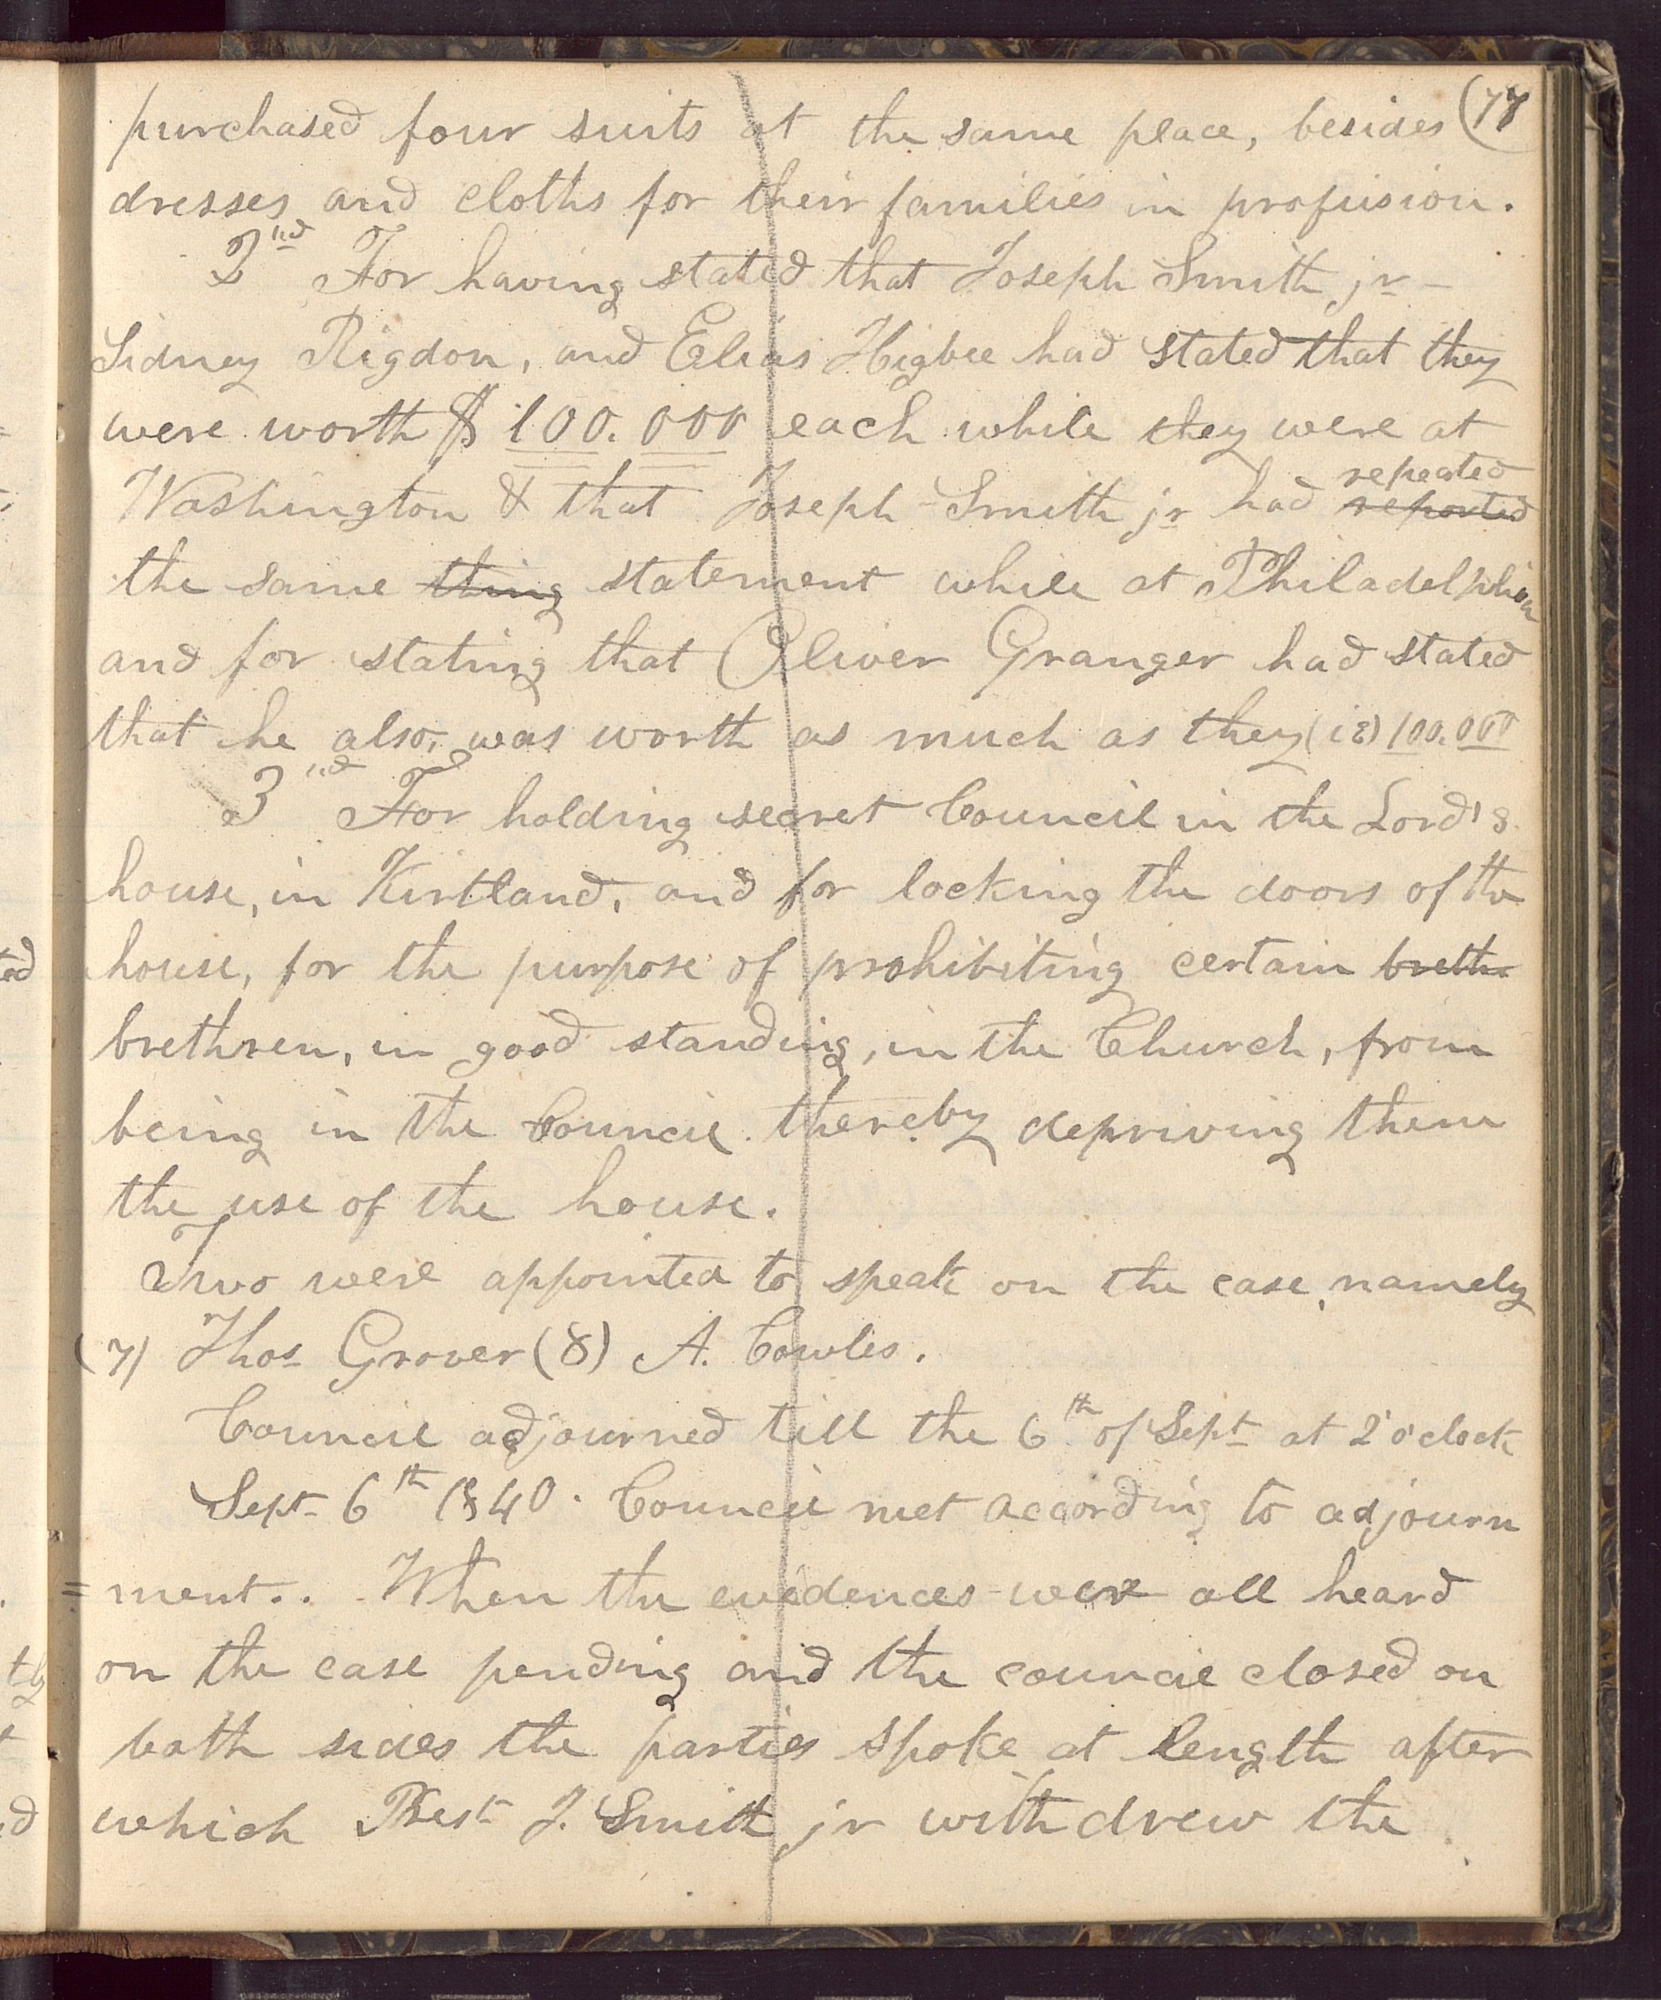 (77
purchased four suits at the same place, besides
dresses and cloths for their families in profusion.
2nd For having stated that Joseph Smith jr
Sidney Rigdon, and Elias Higbee had stated that they
were worth $100.000 each while they were at
Washington & that Joseph Smith jr had reported repeated
the same thing statement while at Philadelphia
and for stating that Oliver Granger had stated
that he also, was worth as much as they (is) 100.000
3nd For holding secret Council in the Lord's
house, in Kirtland, and for locking the doors of the
house, for the purpose of prohibiting certain breth
brethren, in good standing, in the Church, from
being in the Council. thereby depriving them
the use of the house.
Two were appointed to speak on the case, namely
(7) Thos Grover (8) A. Cowles.
Council adjourned till the 6th of Sept at 2 o'clock
Sept 6th 1840. Council met according to adjourn
=ment.. When the evidences were all heard
on the case pending and the council closed on
both sides the parties spoke at length after
which Prest J. Smith jr withdrew the